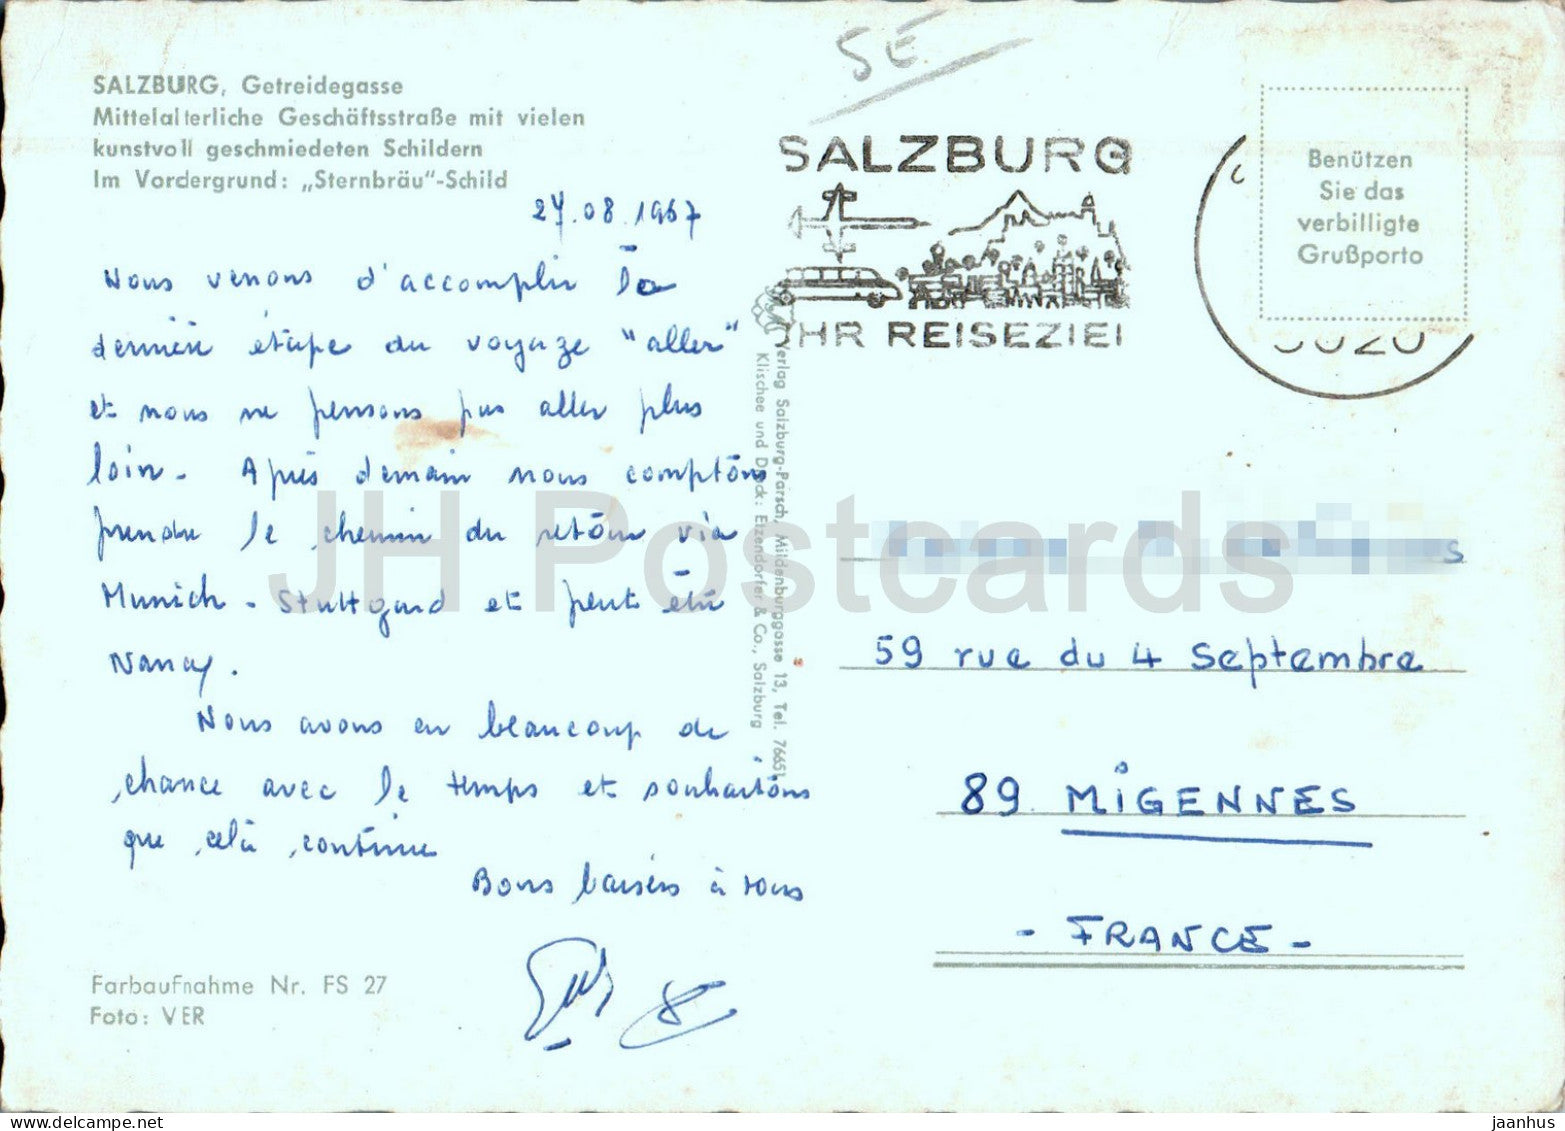 SALZBURG, Getreidegasse
Mittelalterliche Geschäftsstraße mit vielen
kunstvoll geschmiedeten Schildern
Im Vordergrund: „Sternbräu"-Schild
5E
27.08.1967
Nous venons d'accomplir la
dernière étape du voyage "aller"
et nous ne pensons pas aller plus
loin. Après demain nous comptons
prendre le chemin du retour via
Munich - Stuttgard et peut être
Nancy.
Nous avons eu beaucoup de
chance avec le temps et souhaitons
que cela continue
Bons baisers à vous
Farbaufnahme Nr. FS 27
Foto: VER
Verlag Salzburg-Parsch, Mildenburggasse 13, Tel. 76651
Klischee und Druck: Etzendorfer & Co., Salzburg
SALZBURG
IHR REISEZIEL
5020
Benützen
Sie das
verbilligte
Grußporto
59 rue du 4 Septembre
89 MIGENNES
- FRANCE -
JH Postcards
delcampe.net
jaanhus